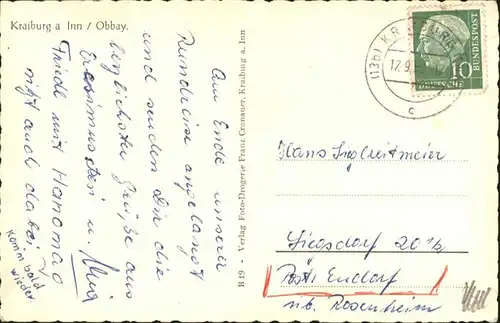 Kraiburg a Inn / Obbay.
Am Ende unserer
Rundreise angelangt
und senden Dir die
herzlichsten Grüße aus
u.
Friedl mit Hanomag
nicht auch dabei,
Komm bald
wieder
B 19 Verlag Foto-Drogerie Franz Cronauer, Kraiburg a. Inn
(13b) KR
17.9.
c
10
DEUTSCHE
BUNDESPOST
Hans
Post: Endorf
nb. Rosenheim